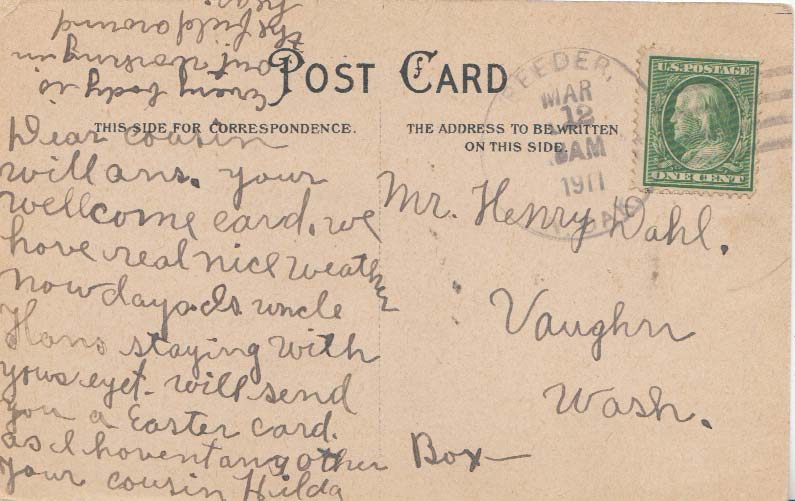 POST CARD
THIS SIDE FOR CORRESPONDENCE.
THE ADDRESS TO BE WRITTEN
ON THIS SIDE.
REEDER,
MAR
12
AM
1911
N. DAK
U.S. POSTAGE
ONE CENT
Dear cousin
will ans. your
wellcome card. we
hove real nice weather
now days. Is uncle
Hans staying with
yous yet. will send
you a Easter card.
as I hovent any other
your cousin Hilda
Every body is
out working in
the field around
hear
Mr. Henry Dahl.
Vaughn
Wash.
Box